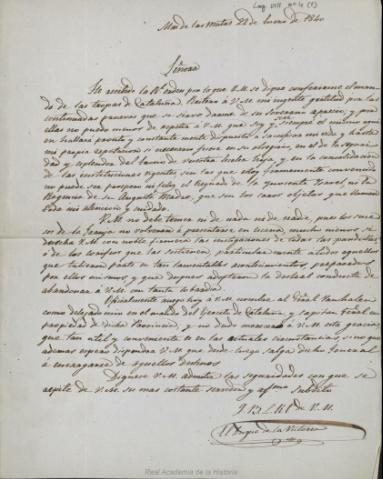 Leg. VIII nº 4 (8)
Mas de las Matas 22 de Enero de 1840
Señora
He recibido la Rl. orden por la que V.M. se digna conferirme el man-
do de las tropas de Cataluña. Reitero a V.M. mi ingente gratitud por las
continuadas pruebas que se sirve darme de su Soberano aprecio, y por
ellas no puedo menos de repetir a V.M. que soy y siempre el mismo quien
en hallará pronto y constantemente dispuesto a sacrificar mi vida y hasta
mi propia reputación si necesario fuese en su obsequio, en el de la seguri-
dad y esplendor del trono de vuestra Excelsa hija, y en la consolidación
de las instituciones vigentes, sin las que estoy firmemente convencido
no puede ser prospero ni feliz el Reynado de la Inocente Isabel, ni la
Regencia de su Augusta Madre, que son los caros objetos que llaman
toda mi atencion y cuidado.
V.M. no debe temer ni de nada ni de nadie, pues los suce-
sos de la Granja no volveran á presentarse en escena, mucho menos si
desecha V.M. con noble firmeza las instigaciones de todas las pandillas
ó de los corifeos que las sostienen, particularmente a todos aquellos
que tubieron parte de tan lamentables acontecimientos, causados
por ellos mismos, y que despues adoptaron la desleal conducta de
abandonar á V.M. con tanta cobardia.
Oficialmente ruego hoy á V.M. nombre al Gral. Vanhalen
como delegado mio en el mando del Ejercito de Cataluña, y Capitan Gral. en
propiedad de dicha Provincia, y no dudo merecer á V.M. esta gracia,
que tan util y conveniente es en las actuales circunstancias, si no que
ademas espero dispondra V.M. que desde luego salga dicho General
á encargarse de aquellos destinos.
Dignese V.M. admitir las seguridades con que se
repite de V.M. su mas constante servidor y afmo. Subdito
Q.B.L.R.P. de V.M.
El Duque de la Victoria
Real Academia de la Historia